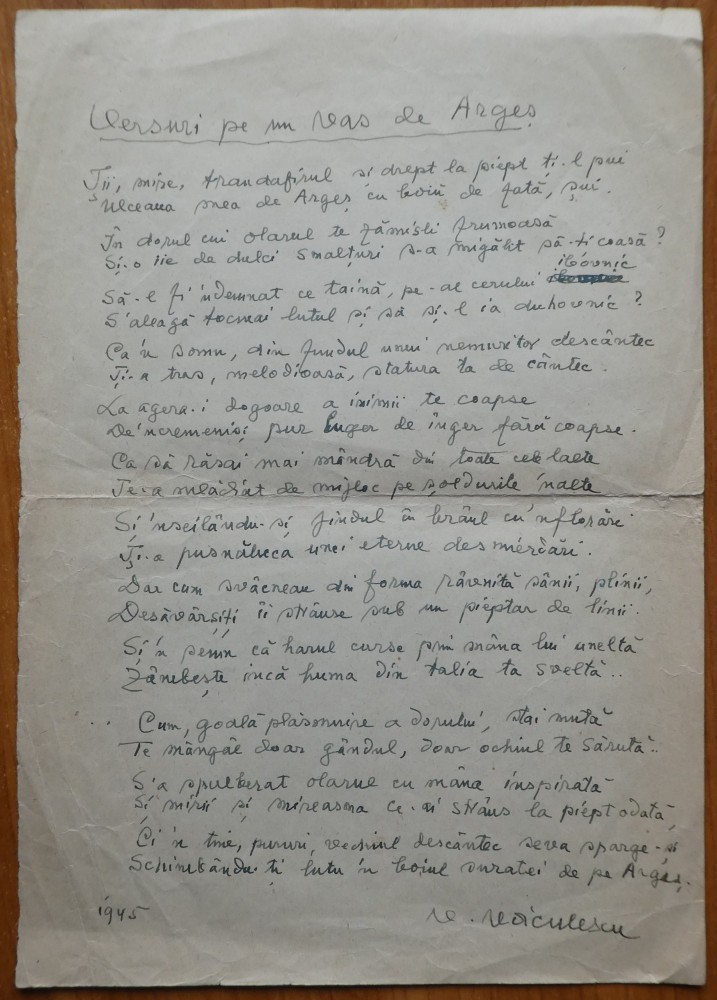 Versuri pe un vas de Argeș
Ții, mire, trandafirul și drept la piept ți-l pui
Ulceaua mea de Argeș cu boiu de fată, șui.
În dorul cui olarul te zămisli frumoasă
Și-o iie de dulci smalțuri s-a migălit să-ți coasă?
Să-l fi 'ndemnat ce taină, pe-al cerului ibovnic
S'aleagă tocmai lutul și să și-l ia duhovnic?
Ca'n somn, din fundul unui nemuritor descântec
Ți-a tras, melodioasă, statura ta de cântec.
La agera-i dogoare a inimii te coapse
De'ncremeniși pur înger de înger fără coapse.
Ca să răsai mai mândră din toate cele laete
Te-a mlădiat de mijloc pe șoldurile 'nalte
Și 'nșeilându-și jindul în brâul cu'nflorări
Ți-a pus năbeca unei eterne desmierdări.
Dar cum svâcneau din forma râvnită sânii, plinii,
Desăvârșiți îi strânse sub un pieptar de linii.
Și'n semn că harul curse prin mâna lui uneltă
Zâmbește încă huma din talia ta sveltă..
.. Cum, goală plăsmuire a dorului, stai mută
Te mângâe doar gândul, doar ochiul te sărută..
S'a spulberat olarul cu mâna inspirată
Și mirii și mireasma ce-ai strâns la piept odată,
Ci'n tine, pururi, vechiul descântec seva sparge-și
Schimbându-ți lutu'n boiul suratei de pe Argeș.
1945
V. Voiculescu